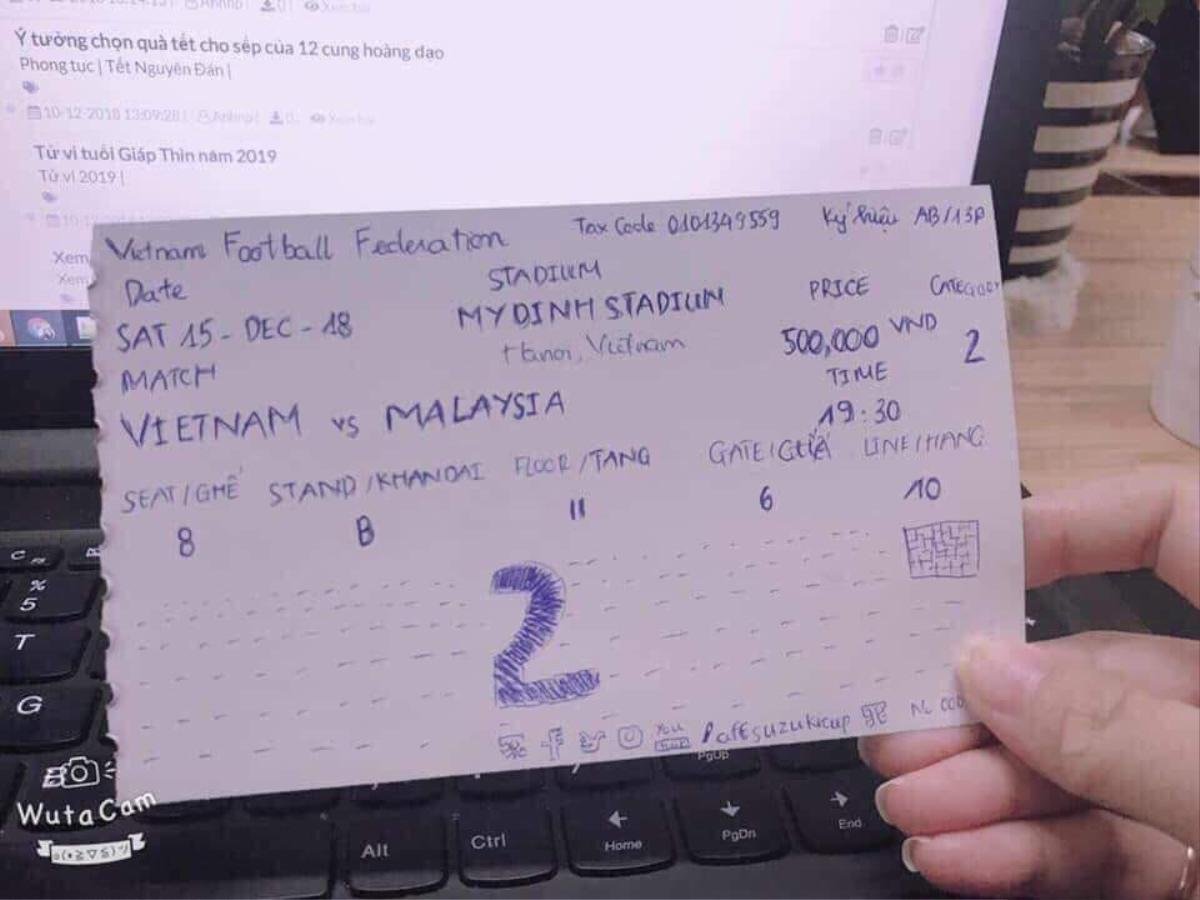 Ý tưởng chọn quà tết cho sếp của 12 cung hoàng đạo
Phong tục | Tết Nguyên Đán |
10-12-2018 13:09:28 | Anhnp | 0 | Xem bài
Tử vi tuổi Giáp Thìn năm 2019
Tử vi 2019 |
Xem
Xem
Vietnam Football Federation Tax Code 0101349559 Ký hiệu AB/13P
Date STADIUM PRICE CATEGORY
SAT 15-DEC-18 MY DINH STADIUM 500,000 VND 2
MATCH Hanoi, Vietnam TIME
VIETNAM vs MALAYSIA 19:30
SEAT/GHẾ STAND/KHANDAI FLOOR/TANG GATE/CỬA LINE/HANG
8 B II 6 10
2
You
Paffsuzukicup
C
%
5
T
G
WutaCam
Alt Ctrl Home PgDn End
PgUp